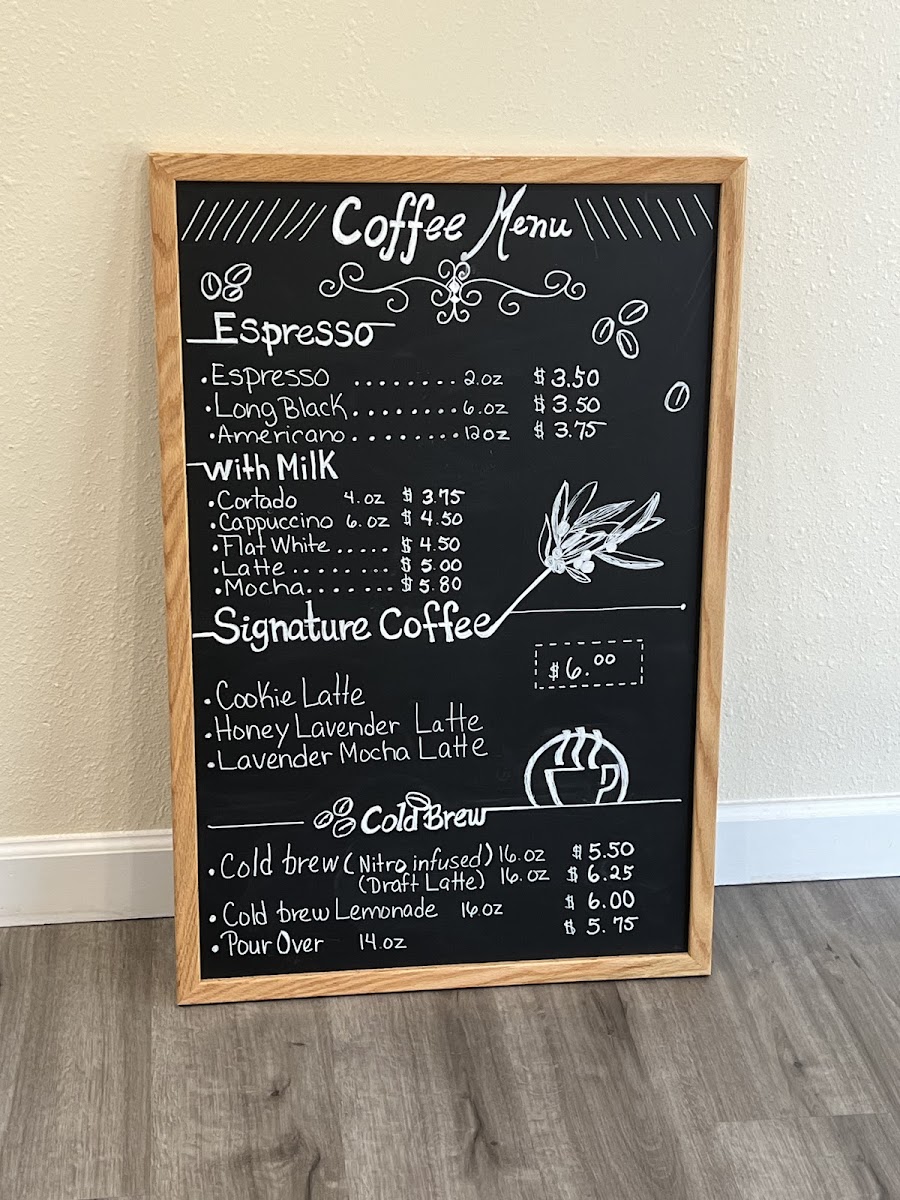 Coffee Menu
Espresso
•Espresso ........ 2.oz $3.50
•Long Black........ 6.oz $3.50
•Americano........ 12oz $3.75
with Milk
•Cortado 4.oz $3.75
•Cappuccino 6.oz $4.50
•Flat White..... $4.50
•Latte........ $5.00
•Mocha....... $5.80
Signature Coffee
$6.00
•Cookie Latte
•Honey Lavender Latte
•Lavender Mocha Latte
Cold Brew
•Cold brew (Nitro infused) 16.oz $5.50
(Draft Latte) 16.oz $6.25
•Cold brew Lemonade 16.oz $6.00
•Pour Over 14.oz $5.75